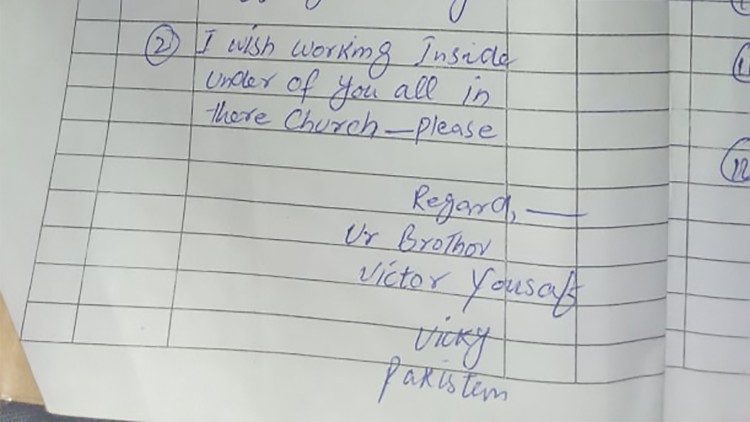 ② I wish working Inside
under of you all in
there Church — please
Regard, —
Ur Brother
Victor Yousaf
Vicky
Pakistan